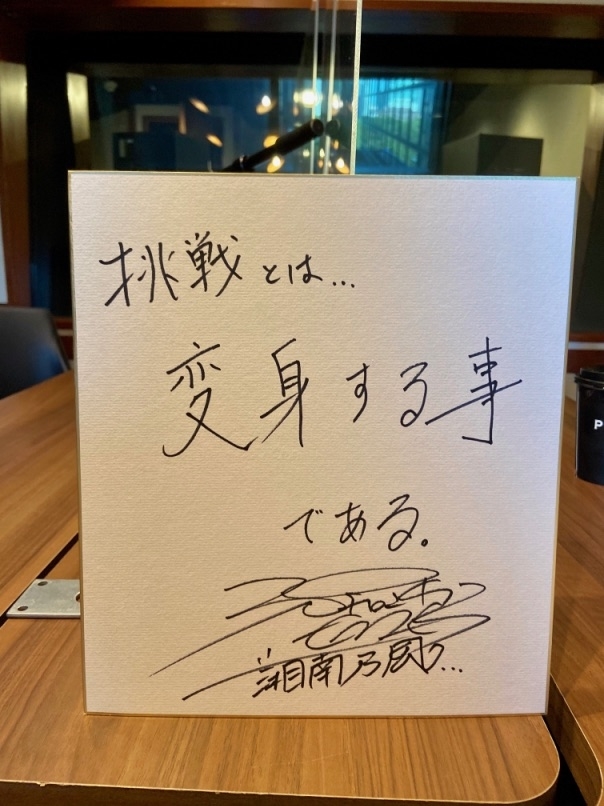 挑戦とは…
変身する事
である。
湘南乃風…
P